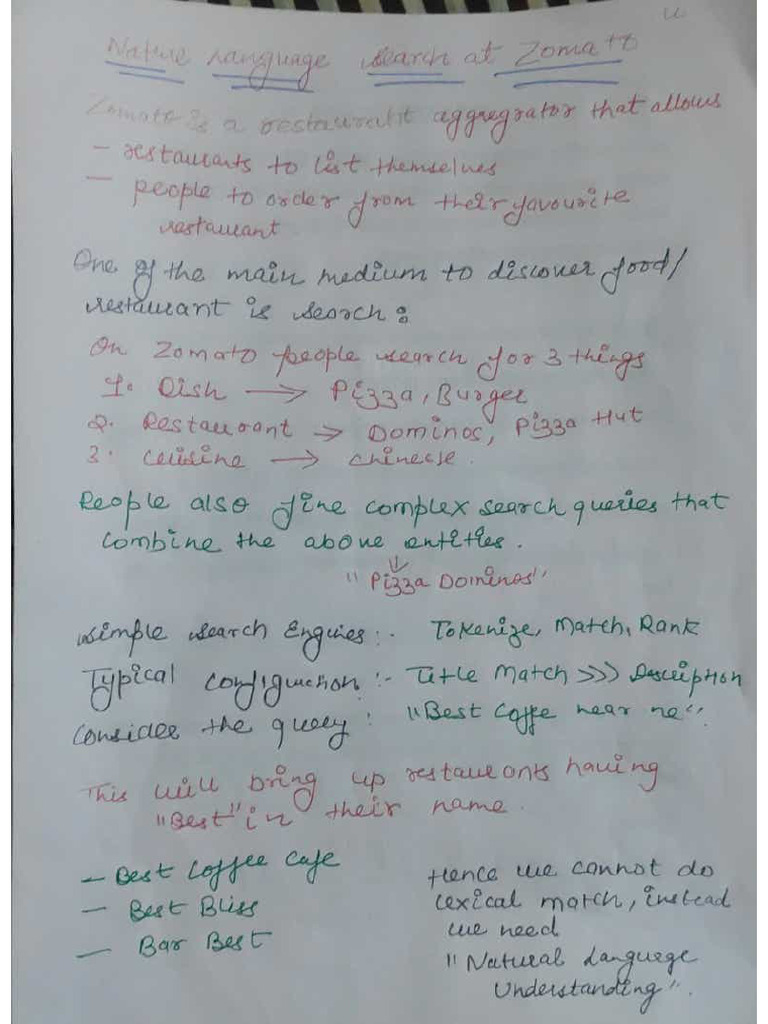 Nature Language Search at Zomato
Zomato is a restaurant aggregrator that allows
- restaurants to list themselves
- people to order from their favourite
restaurant
One of the main medium to discover food/
restaurant is search:
On Zomato people search for 3 things
1. Dish → Pizza, Burger
2. Restaurant → Dominos, Pizza Hut
3. Cuisine → Chinecse.
People also fine complex search queries that
combine the above entities.
"Pizza Dominos"
Simple Search Engines:- Tokenize, Match, Rank
Typical configuration:- Title Match >>> Description
Consider the query: "Best Coffe near ne".
This will bring up restaurants having
"Best" in their name.
- Best Coffee Cafe
- Best Bliss
- Bar Best
Hence we cannot do
lexical match, instead
we need
"Natural Language
Understanding".